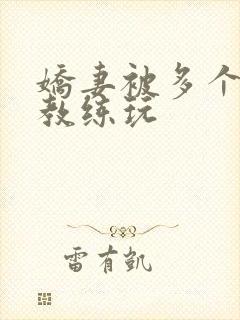 嬌妻被多个
教练玩
雷有凯